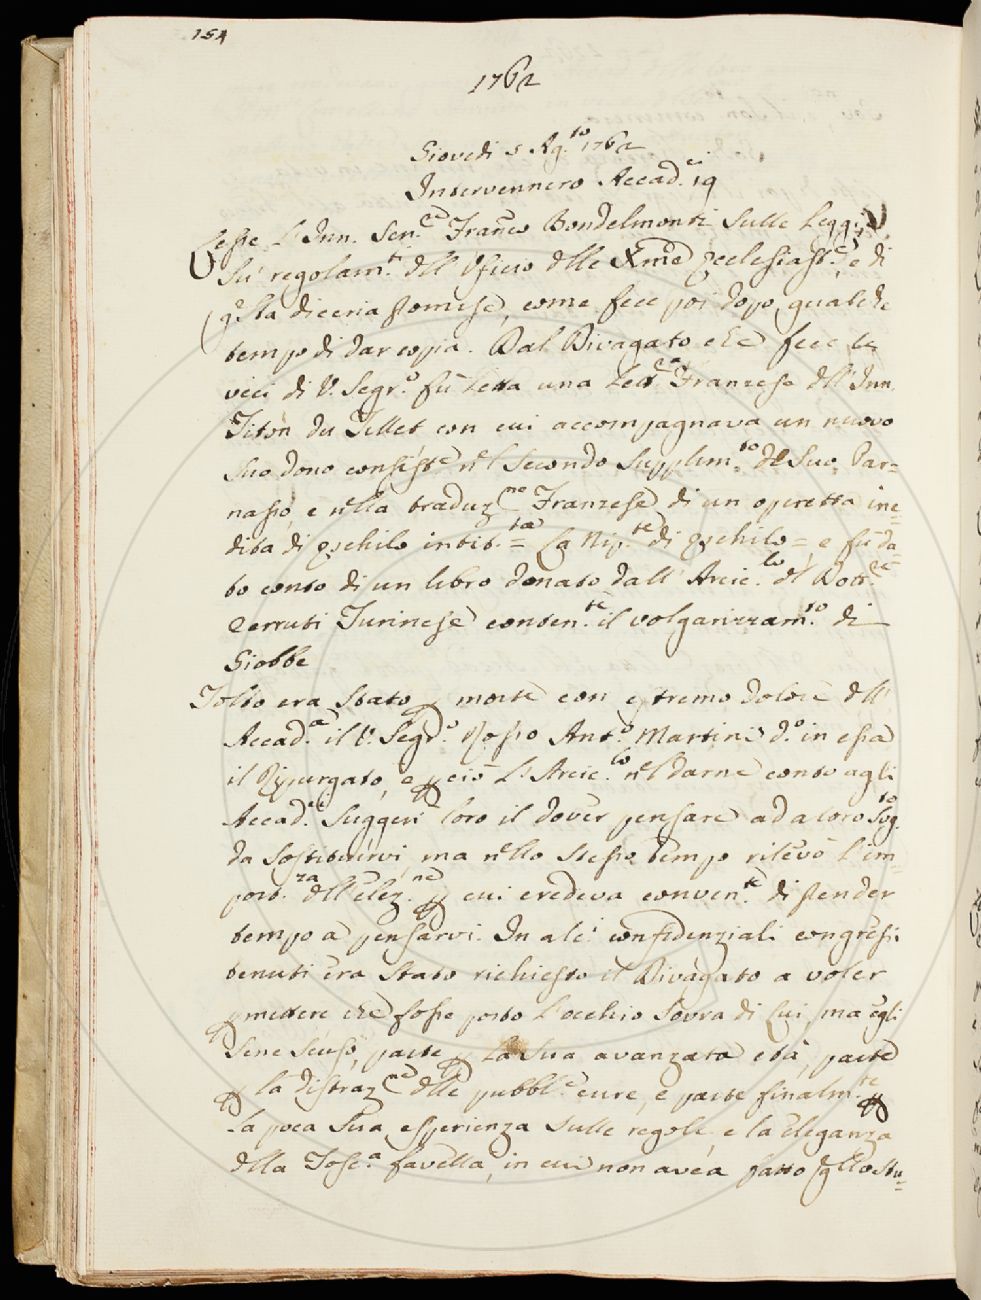 154
1762
Giovedi 5 Ag.to 1762
Intervennero Accad.ci 19
Lesse L'Inn. Sen.re Franc.o Bondelmonti sulle Leggi, e
su' regolam.ti dell'Ufizio delle Xme Ecclesiast.e, e di
q.sta diceria promise, come fece poi dopo qualche
tempo di dar copia. Dal Divagato che fece le
veci di V. Segr.o fù Letta una Lett.ra Franzese dell'Inn.
Titon du Tillet con cui accompagnava un nuovo
suo dono consist.e nel secondo supplim.to del suo Par=
nasso, e nella traduz.ne Franzese di un operetta ine=
dita di Eschilo intit.ta = La Nip.te di Eschilo =, e fù da=
to conto di un libro donato dall'Arcic.lo del Dott.re
Cerruti Turinese conten.te il volgarizzam.to di
Giobbe
Tolto era stato p morte con estremo dolore dell'
Accad.a il V. Segr.o Rosso Ant.o Martini d.o in essa
il Ripurgato, e p ciò L'Arcic.lo nel darne conto agli
Accad.ci suggerì loro il dover pensare ad altro sog.to
da sostituirvi, ma nello stesso tempo rilevò l'im=
port.za dell'elez.ne p cui credeva conven.te di prender
tempo a pensarvi. In alc.i confidenziali congressi
tenuti era stato richiesto il Divagato a voler
pmettere che fosse posto l'occhio sovra di Lui, ma egli
sene scusò, parte p la sua avanzata età, parte
p la distraz.ne delle pubbl.e cure, e parte finalm.te p
la poca sua esperienza sulle regole, e la eleganza
della Tosc.a favella, in cui non avea fatto q.llo stu=